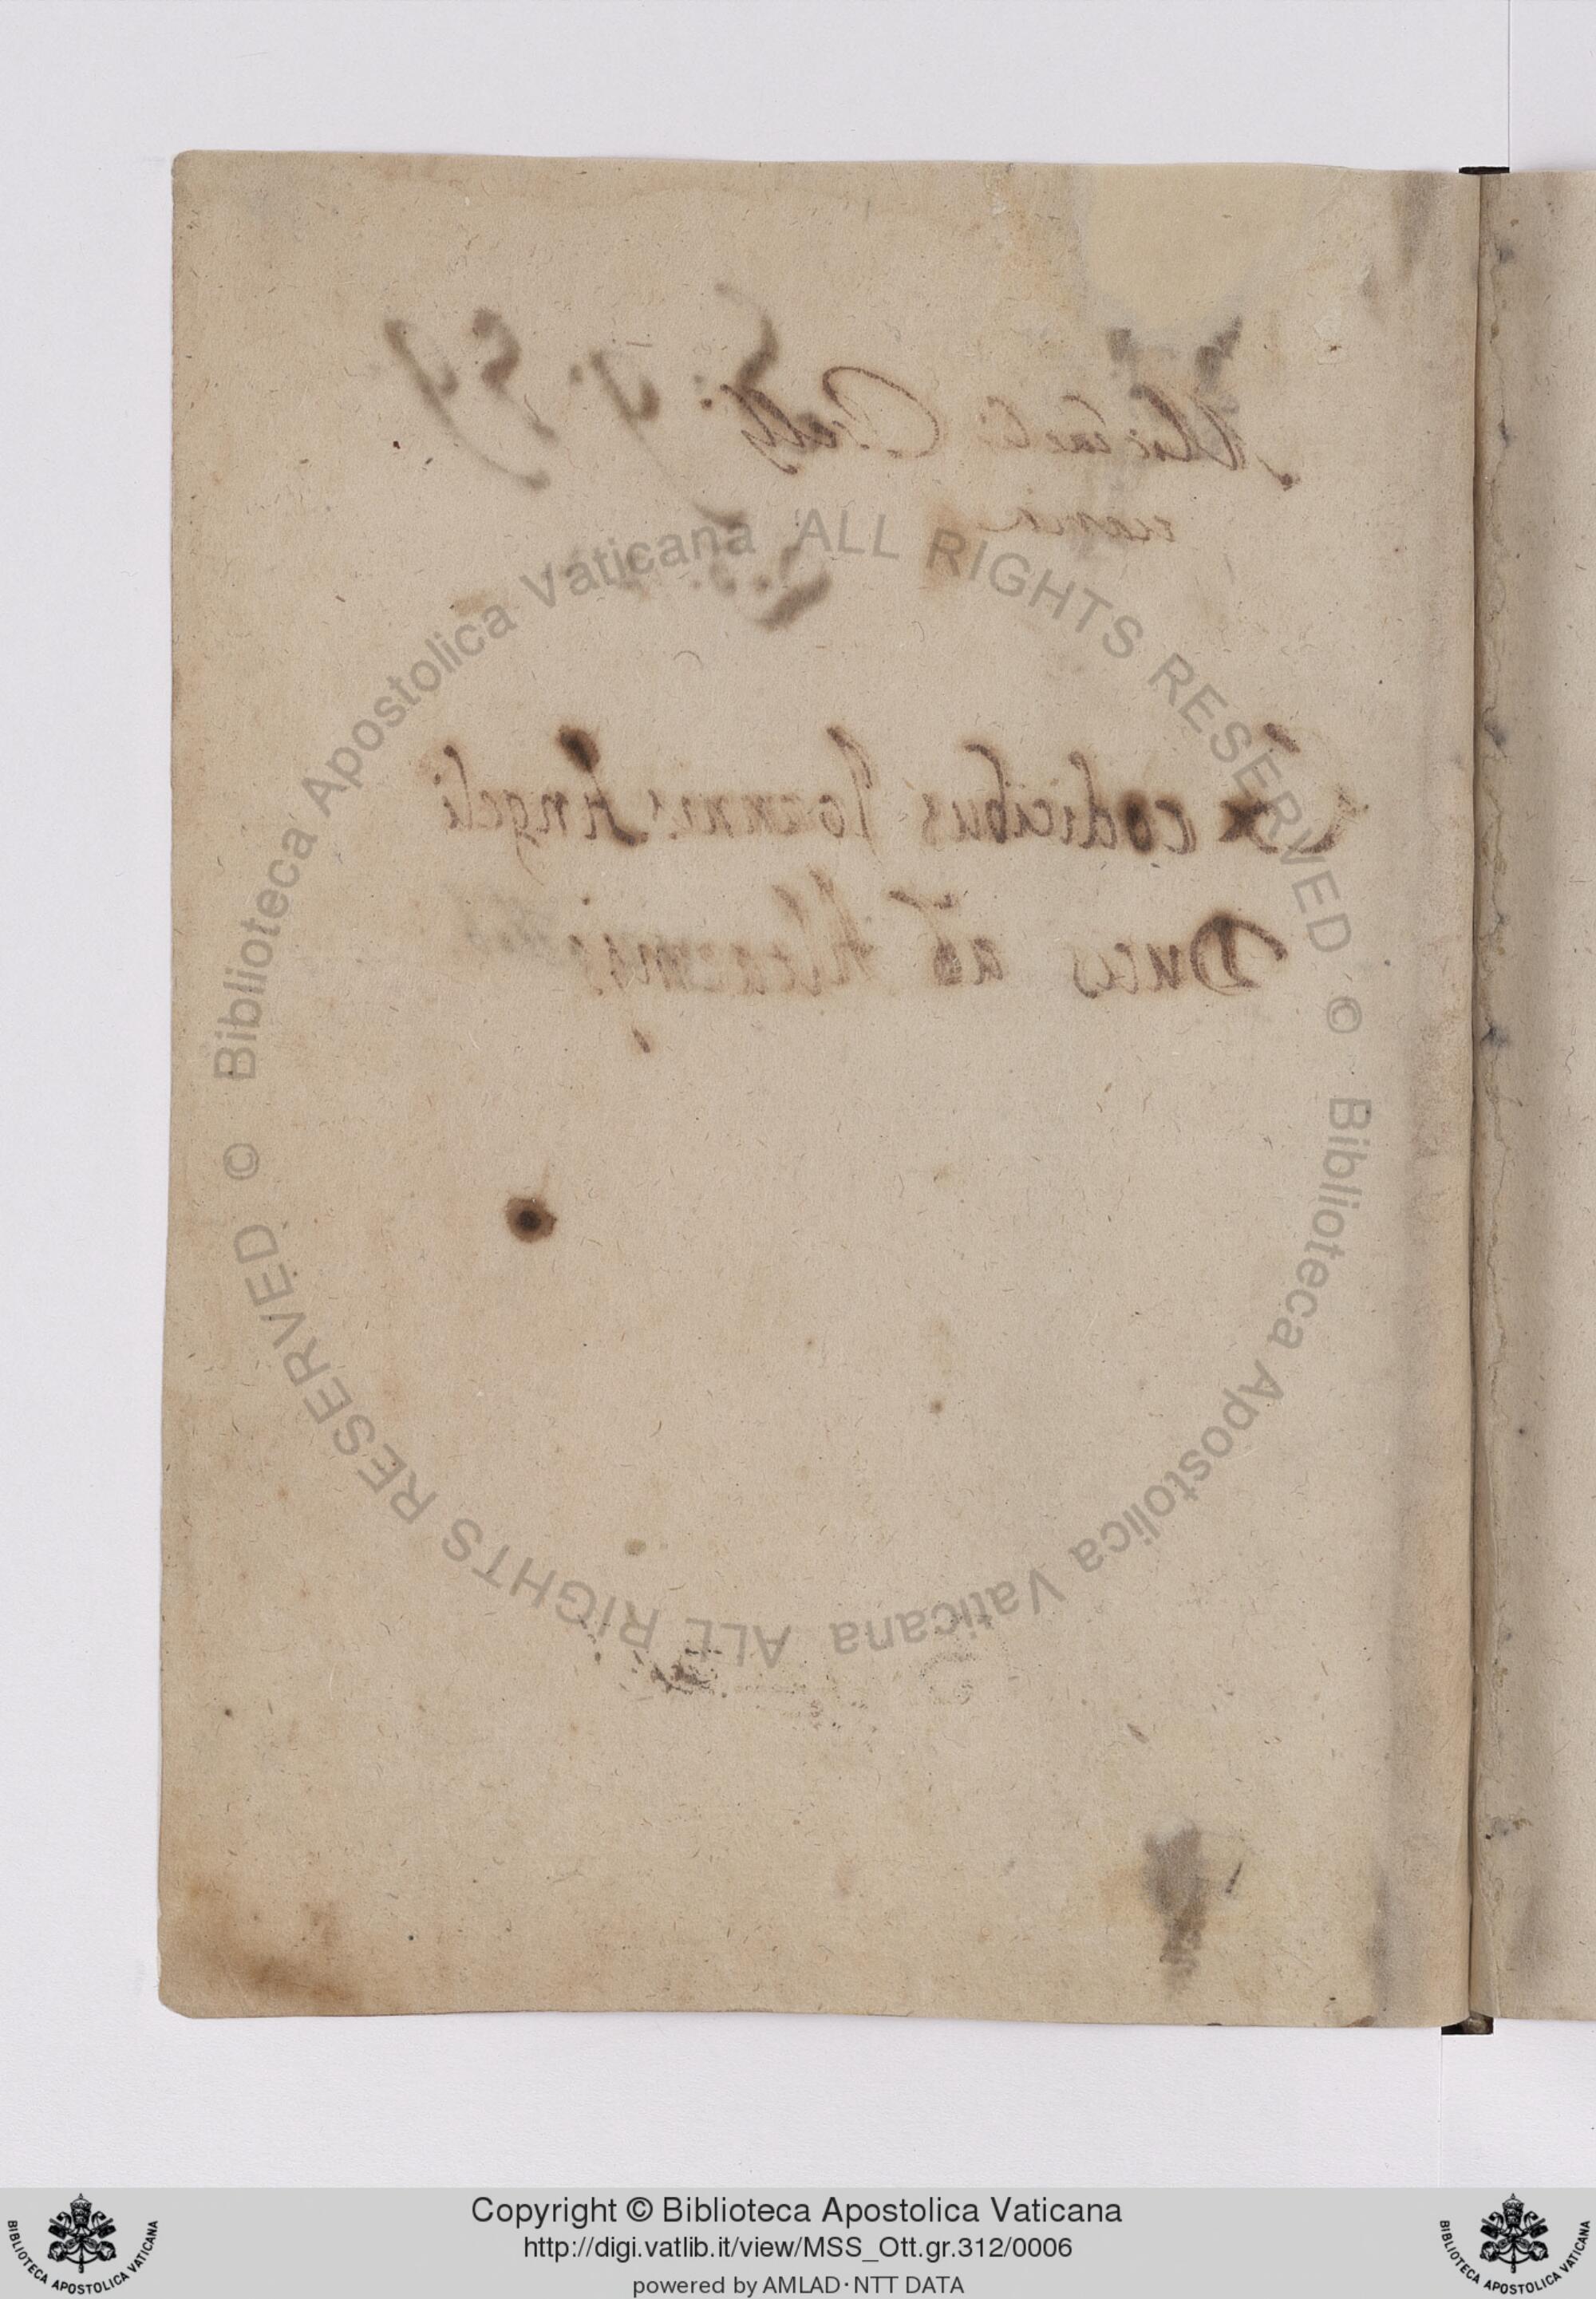 S. 9. 59
Ex codicibus Joannis Angeli
Ducis ab Altaemps
ALL RIGHTS RESERVED © Biblioteca Apostolica Vaticana
ALL RIGHTS RESERVED © Biblioteca Apostolica Vaticana
Copyright © Biblioteca Apostolica Vaticana
http://digi.vatlib.it/view/MSS_Ott.gr.312/0006
powered by AMLAD · NTT DATA
BIBLIOTECA APOSTOLICA VATICANA
BIBLIOTECA APOSTOLICA VATICANA